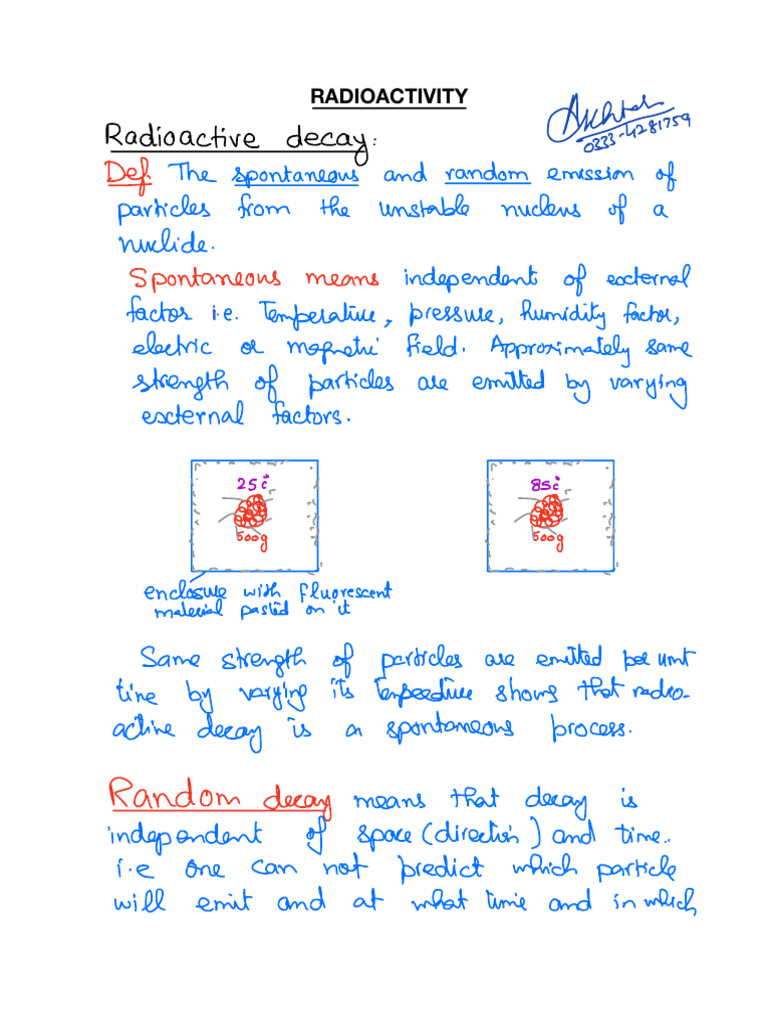 RADIOACTIVITY
Akhtar
0333-4281759
Radioactive decay:
Def. The spontaneous and random emission of
particles from the unstable nucleus of a
nuclide.
Spontaneous means independent of external
factor i.e. Temperature, pressure, humidity factor,
electric or magnetic field. Approximately same
strength of particles are emitted by varying
external factors.
25°C
500g
85°C
500g
enclosure with fluorescent
material pasted on it
Same strength of particles are emitted per unit
time by varying its Temperature shows that radio-
active decay is a spontaneous process.
Random decay means that decay is
independent of space (direction) and time..
i.e one can not predict which particle
will emit and at what time and in which